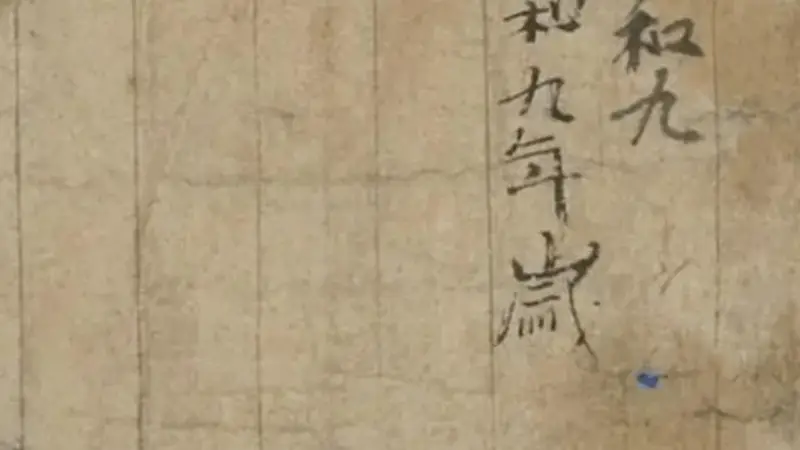 和九
和九年歲